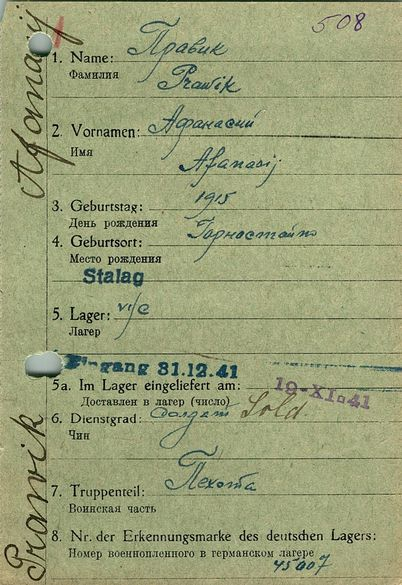 508
Afanasij
1. Name: Правик
Фамилия Prawik
2. Vornamen: Афанасий
Имя
Afanasij
3. Geburtstag: 1915
День рождения
4. Geburtsort:
Место рождения
Stalag
5. Lager: VI/C
Лагер
Eingang 31.12.41
5a. Im Lager eingeliefert am: 19-XI-41
Доставлен в лагер (число)
6. Dienstgrad: Солдат Sold.
Чин
7. Truppenteil: Пехота
Воинская часть
8. Nr. der Erkennungsmarke des deutschen Lagers:
Номер военнопленного в германском лагере
45007
Prawik